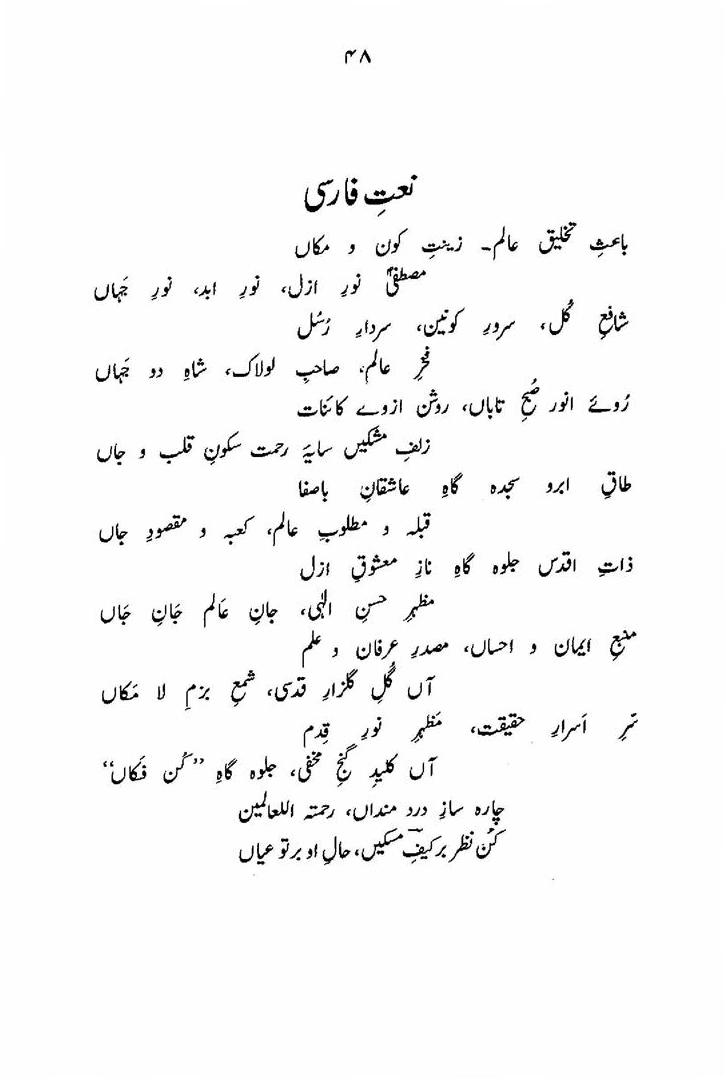 ۴۸
نعتِ فارسی
باعثِ تخلیق عالم۔ زینتِ کون و مکاں
مصطفیٰؐ نورِ ازل، نورِ ابد، نورِ جَہاں
شافعِ کُل، سرورِ کونین، سردارِ رُسُل
فخرِ عالم، صاحبِ لولاک، شاہِ دو جَہاں
رُوئے انور صُبحِ تاباں، روشن ازوے کائنات
زلفِ مشکیں سایۂ رحمت سکونِ قلب و جاں
طاقِ ابرو سجدہ گاہِ عاشقانِ باصفا
قبلہ و مطلوبِ عالم، کعبہ و مقصودِ جاں
ذاتِ اقدس جلوہ گاہِ نازِ معشوقِ ازل
مظہرِ حسنِ الٰہی، جانِ عَالم جَانِ جَاں
منبعِ ایمان و احساں، مصدرِ عِرفان و علم
آں گُلِ گلزارِ قدسی، شمعِ بزمِ لا مَکاں
سِّرِ اَسرارِ حقیقت، مَظہرِ نورِ قِدم
آں کلیدِ گنجِ مخفی، جلوہ گاہِ ”کُن فَکاں“
چارہ سازِ درد منداں، رحمتہ اللعالمین
کُن نظر بر کیفِؔ مسکیں، حالِ او بر تو عیاں